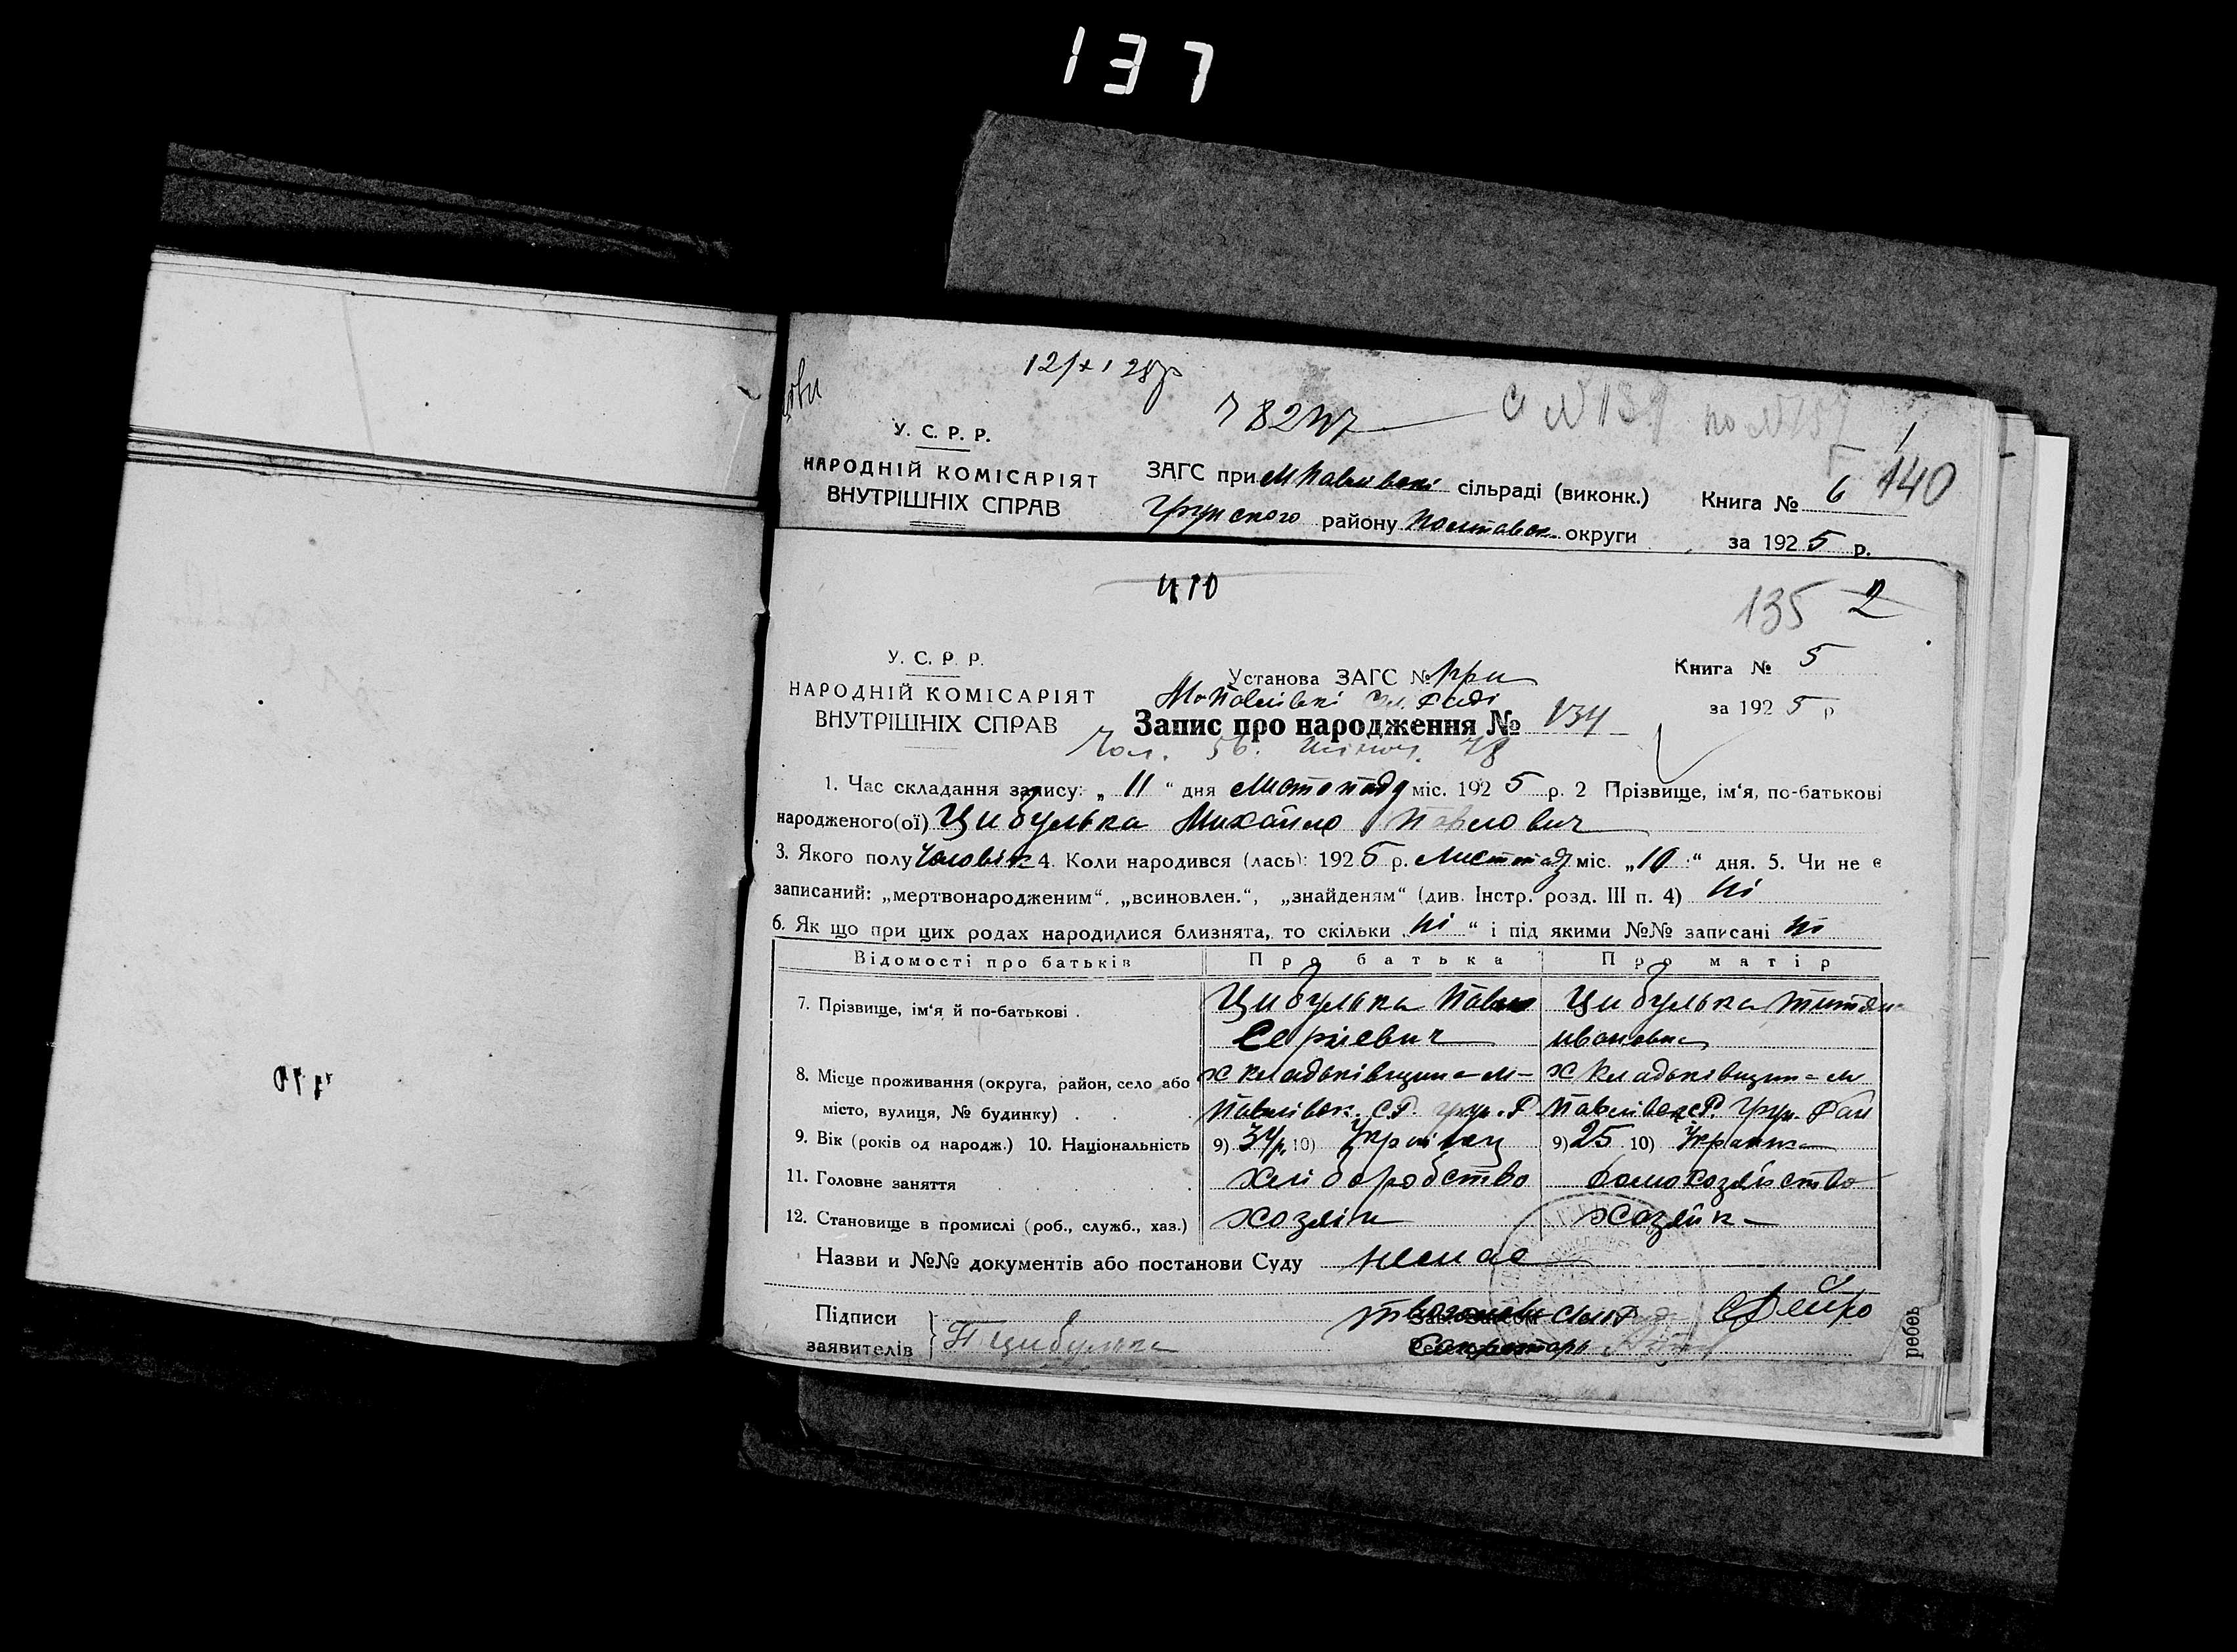 137
У. С. Р. Р.
НАРОДНІЙ КОМІСАРІЯТ
ВНУТРІШНІХ СПРАВ
ЗАГС при М Павлівскі сільраді (виконк.)
Грунского району Полтавск. округи
Книга № 6
140
за 1925 р.
410
135 2
У. С. Р. Р.
НАРОДНІЙ КОМІСАРІЯТ
ВНУТРІШНІХ СПРАВ
Установа ЗАГС № при
Книга № 5
за 1925 р
Запис про народження № 134
Чол. 56. Жіноч. 78
1. Час складання запису: „ 11 “ дня Листопаду міс. 1925 р. 2 Прізвище, ім‘я, по-батькові
народженого(ої) Цибулька Михайло Павлович
3. Якого полу Чоловік 4. Коли народився (лась): 1925 р. Листопад міс. „10“ дня. 5. Чи не є
записаний: „мертвонародженим“, „всиновлен.“, „знайденям“ (див. Інстр. розд. III п. 4) ні
6. Як що при цих родах народилися близнята, то скільки „ні“ і під якими №№ записані ні
Відомості про батьків Про батька Про матір
7. Прізвище, ім‘я й по-батькові . Цибулька Павло Цибулька Титяна
Сергіевич ивановна
8. Місце проживання (округа, район, село або х Кладьківщина М- х Кладьківщина М
місто, вулиця, № будинку) . . Павлівск. С.Р. Грун. Р. Павлівск С.Р. Грун. Рай
9. Вік (років од народж.) 10. Національність 9) 34р. 10) Українец 9) 25 10) Українка
11. Головне заняття хліборобство домохозяйство
12. Становище в промислі (роб., служб., хаз.) хозяін хозяйка
Назви и №№ документів або постанови Суду немае
Підписи
заявителів П Цибулька
Секретарь